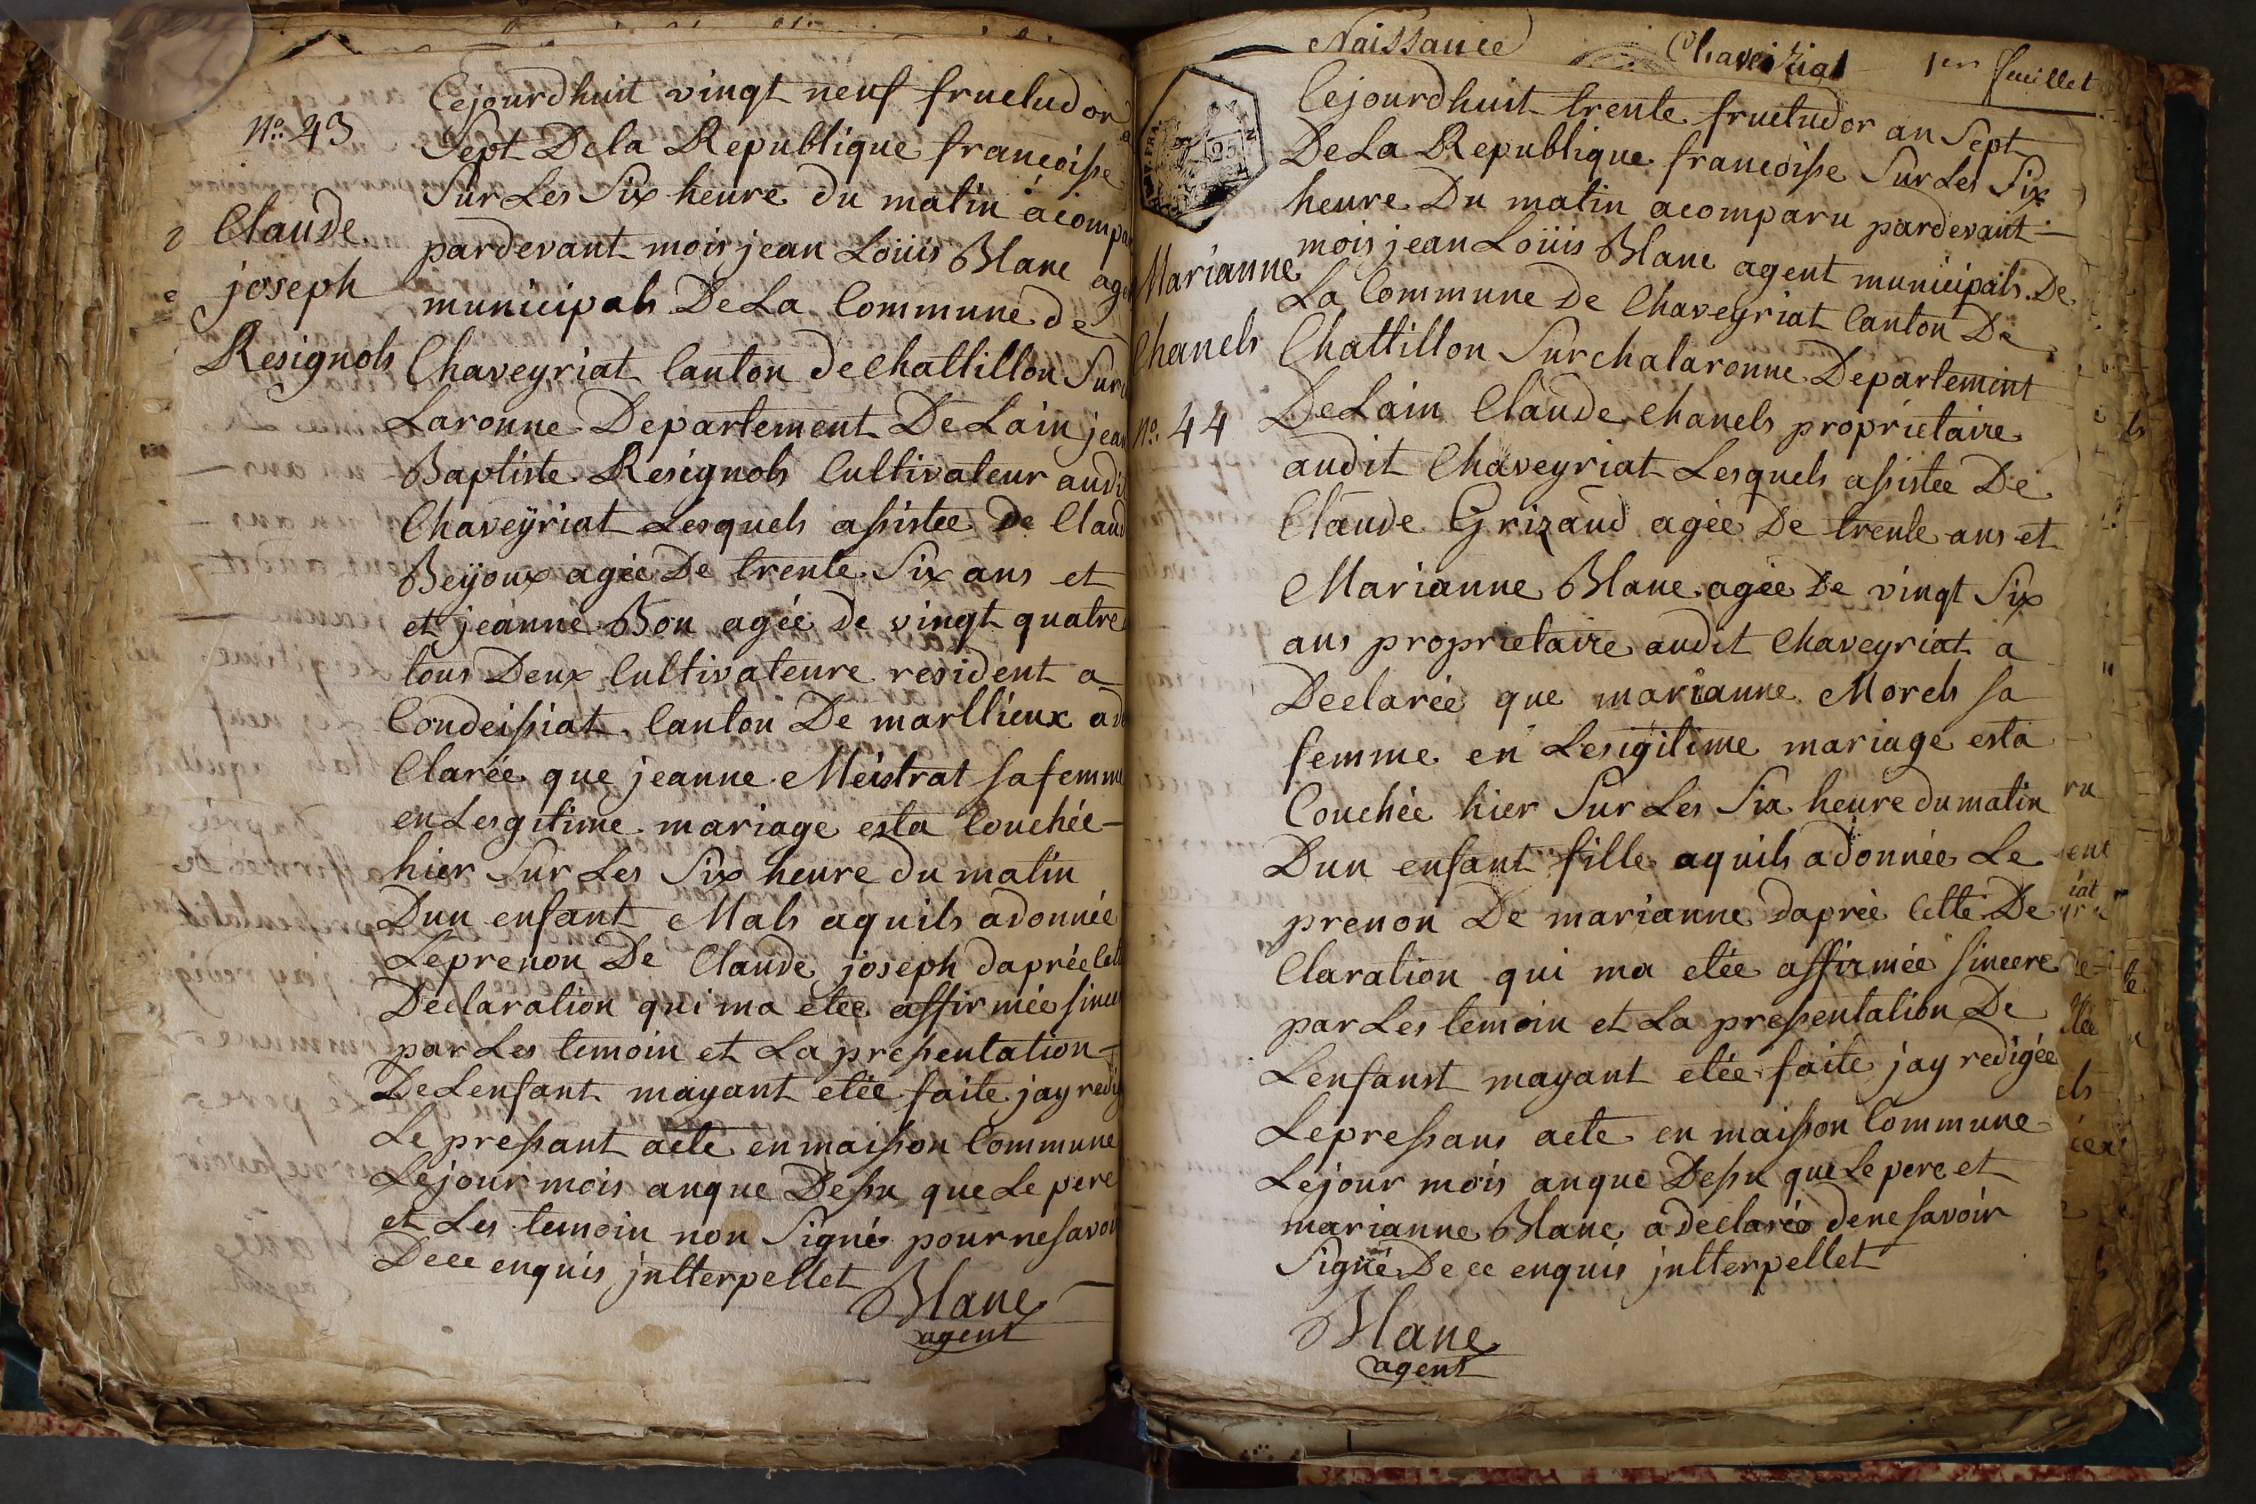 No. 43
Claude
joseph
Resignols
Cejourdhuit vingt neuf fructudor
Sept De la Republique francoisse
Sur Les Six heure du matin acompa
pardevant mois jean Loüis Blanc age
municipals De La Commune de
Chaveyriat Canton de Chattillon Sur
Laronne Departement De Lain jean
Baptiste Resignols Cultivateur audi
Chaveyriat Lesquels assistee De Claud
Beyoux agée De trente Six ans et
et jeanne Bon agée de vingt quatre
tous Deux Cultivateure resident a
Condeissiat Canton De marllieux a de
Clarée que jeanne Meistrat sa femme
en Lesgitime mariage esta Couchée
hier Sur Les Six heure du matin
Dun enfant Mals aquils adonnée
Leprenon De Claude joseph daprée Cett
Declaration qui ma etée affirmée sincer
par Les temoin et La pressentation
De Lenfant mayant etée faite jay redig
Le pressant acte en maisson Commune
Le jour mois anque Dessu que Le pere
et Les temoin non Signé pour ne savoir
Dece enquis jntterpellet
Blanc
agent
Naissance Chaveiriat 1er feuillet
25
Marianne
Chanels
No. 44
Cejourdhuit trente fructudor an Sept
De La Republique francoisse Sur Les Six
heure Du matin acomparu pardevant
mois jean Loüis Blanc agent municipals De
La Commune De Chaveyriat Canton De
Chattillon Sur chalaronne Departement
De Lain Claude Chanels proprietaire
audit Chaveyriat Lesquels assistee De
Claude Grizaud agée De trente ans et
Marianne Blanc agée De vingt Six
ans proprietaire audit Chaveyriat a
Declarée que marianne Morels sa
femme en Lesigitime mariage esta
Couchée hier Sur Les Six heure du matin
Dun enfant fille aquils adonnée Le
prenon De marianne daprée Cette De
Claration qui ma etée affirmée sincere
par Les temoin et La pressentation De
Lenfanst mayant etée faite jay redigée
Le pressans acte en maisson Commune
Le jour mois anque Dessu que Le pere et
marianne Blanc a declarée de ne savoir
Signé De ce enquis jntterpellet
Blanc
agent